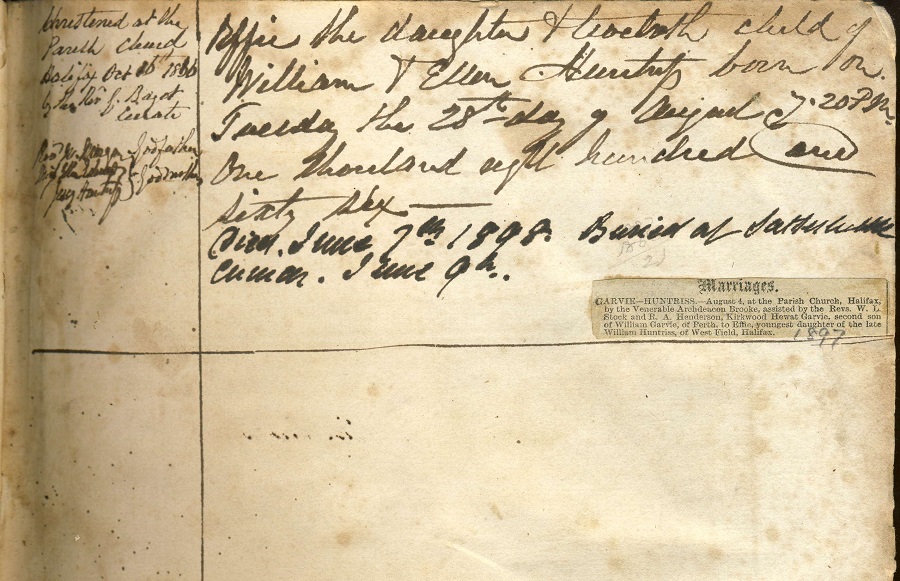 Christened at the
Parish church
Halifax Oct 16th 1866
by the Revd J. Bagot
Curate
Godfather
Godmother
Effie the daughter & twelvth child of
William & Ellen Huntriss born on
Tuesday the 28th day of August 7.20 P.M.
One thousand eight hundred and
sixty six
Died. June 7th 1898. Buried at
June 9th.
Marriages.
GARVIE—HUNTRISS.—August 4, at the Parish Church, Halifax,
by the Venerable Archdeacon Brooke, assisted by the Revs. W. L.
Stock and R. A. Henderson, Kirkwood Hewat Garvie, second son
of William Garvie, of Perth, to Effie, youngest daughter of the late
William Huntriss, of West Field, Halifax.
1897